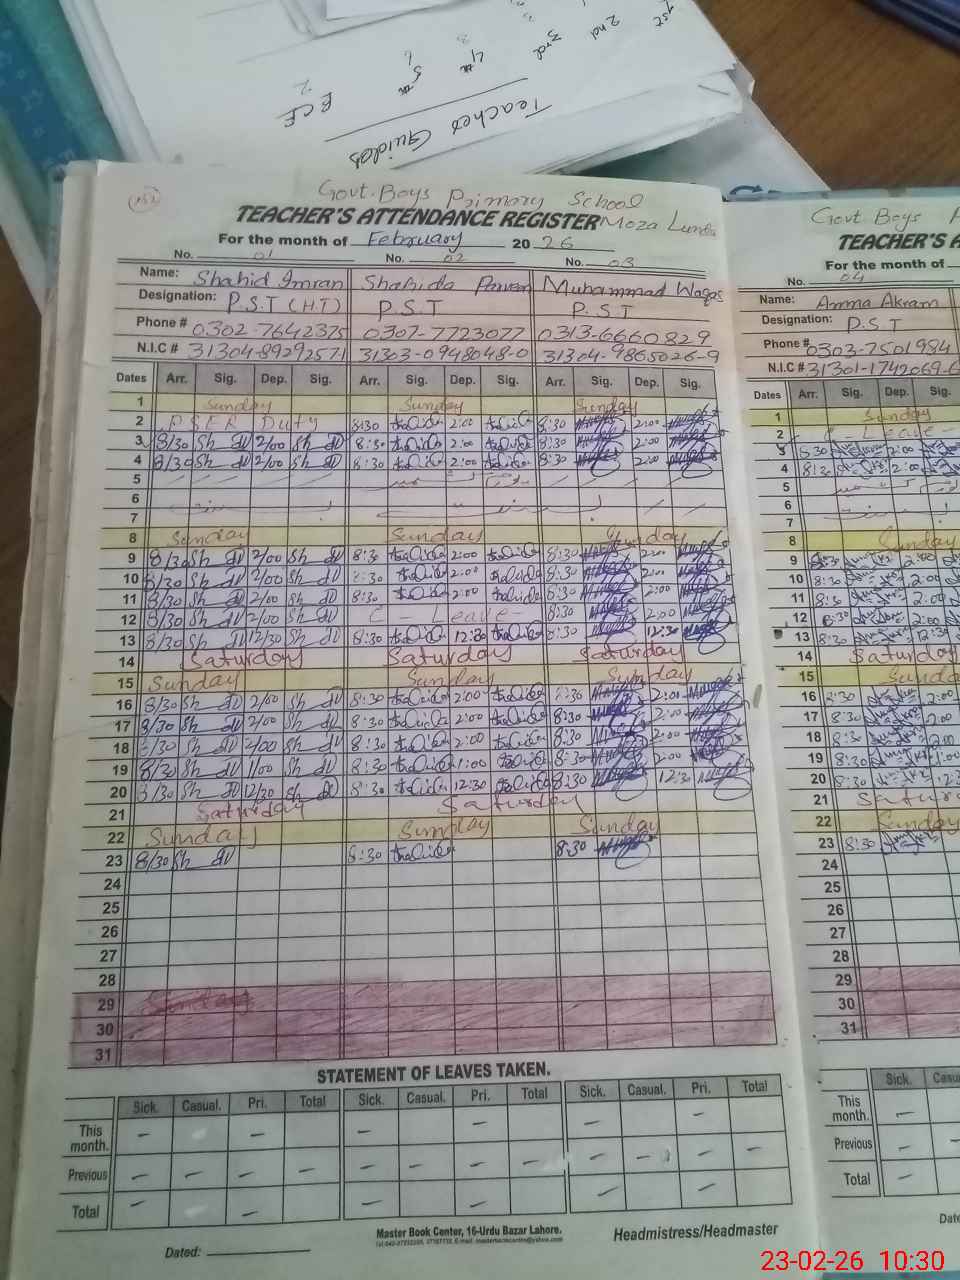 1st
2nd
3rd
4th
5th
ECE
Teacher Guides
Govt. Boys Primary School
TEACHER'S ATTENDANCE REGISTER Moza Lunda
For the month of February 20 26
No. 01 No. 02 No. 03
Name: Shahid Imran Shahida Parveen Muhammad Waqas
Designation: P.S.T (H.T) P.S.T P.S.T
Phone # 0302-7642375 0307-7723077 0313-6660829
N.I.C # 31304-8929257-1 31303-0948048-0 31304-9865026-9
Dates Arr. Sig. Dep. Sig. Arr. Sig. Dep. Sig. Arr. Sig. Dep. Sig.
1 Sunday Sunday Sunday
2 PSER Duty 8:30 2:00 8:30 2:00
3 8/30 Sh 2/00 Sh 8:30 2:00 8:30 2:00
4 8/30 Sh 2/00 Sh 8:30 2:00 8:30 2:00
5
6
7
8 Sunday Sunday Sunday
9 8/30 Sh 2/00 Sh 8:30 2:00 8:30 2:00
10 8/30 Sh 2/00 Sh 8:30 2:00 8:30 2:00
11 8/30 Sh 2/00 Sh 8:30 2:00 8:30 2:00
12 8/30 Sh 2/00 Sh C - Leave - 8:30 2:00
13 8/30 Sh 12/30 Sh 8:30 12:30 8:30 12:30
14 Saturday Saturday Saturday
15 Sunday Sunday Sunday
16 8/30 Sh 2/00 Sh 8:30 2:00 8:30 2:00
17 8/30 Sh 2/00 Sh 8:30 2:00 8:30 2:00
18 8/30 Sh 2/00 Sh 8:30 2:00 8:30 2:00
19 8/30 Sh 1/00 Sh 8:30 1:00 8:30 2:00
20 8/30 Sh 12/30 Sh 8:30 12:30 8:30 12:30
21 Saturday Saturday
22 Sunday Sunday Sunday
23 8/30 Sh 8:30 8:30
24
25
26
27
28
29 Sunday
30
31
STATEMENT OF LEAVES TAKEN.
Sick. Casual. Pri. Total Sick. Casual. Pri. Total Sick. Casual. Pri. Total
This month. - - - - -
Previous - - - - - - - - - - - -
Total - - - - - -
Master Book Center, 16-Urdu Bazar Lahore.
Dated: Headmistress/Headmaster
Govt Boys
TEACHER'S A
For the month of
No. 04
Name: Amma Akram
Designation: P.S.T
Phone # 0303-7501984
N.I.C # 31301-1742069-6
Dates Arr. Sig. Dep.
1 Sunday
2 C Leave -
3 8:30 2:00
4 8:30 2:00
5
6
7
8 Sunday
9 8:30 2:00
10 8:30 2:00
11 8:30 2:00
12 8:30 2:00
13 8:30 12:30
14 Saturday
15 Sunday
16 8:30 2:00
17 8:30 2:00
18 8:30 2:00
19 8:30 1:00
20 8:30 12:30
21 Satur
22 Sunday
23 8:30
24
25
26
27
28
29
30
31
Sick. Casu
This month. -
Previous -
Total -
Date
23-02-26 10:30